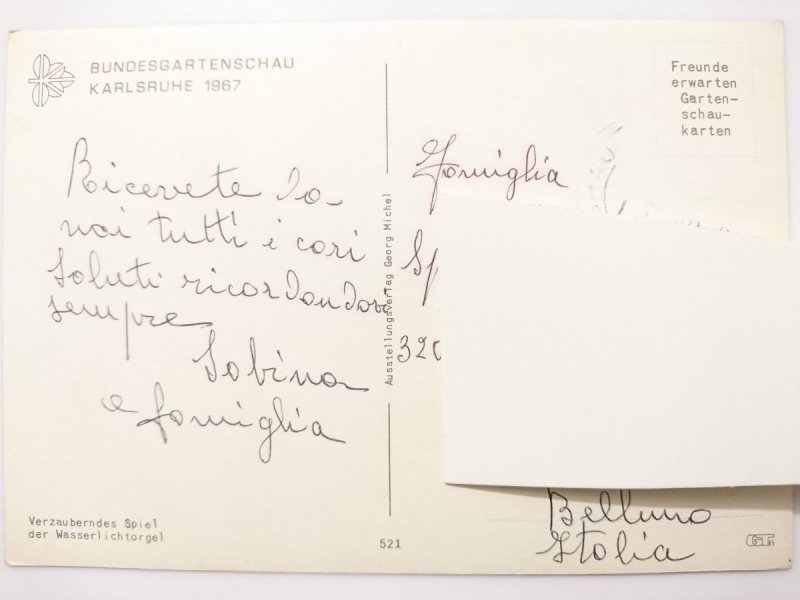 BUNDESGARTENSCHAU
KARLSRUHE 1967
Ricevete da
noi tutti i cari
saluti ricordandovi
sempre
Sabina
e famiglia
Verzauberndes Spiel
der Wasserlichtorgel
521
Ausstellungsverlag Georg Michel
Freunde
erwarten
Garten-
schau-
karten
Famiglia
Sp
320
Belluno
Italia